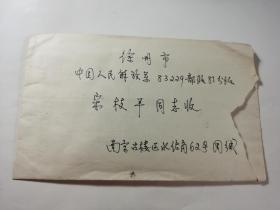 徐州市
中国人民解放军83229部队81分队
宋枝平同志收
南京鼓楼区水佐岗62号周缄